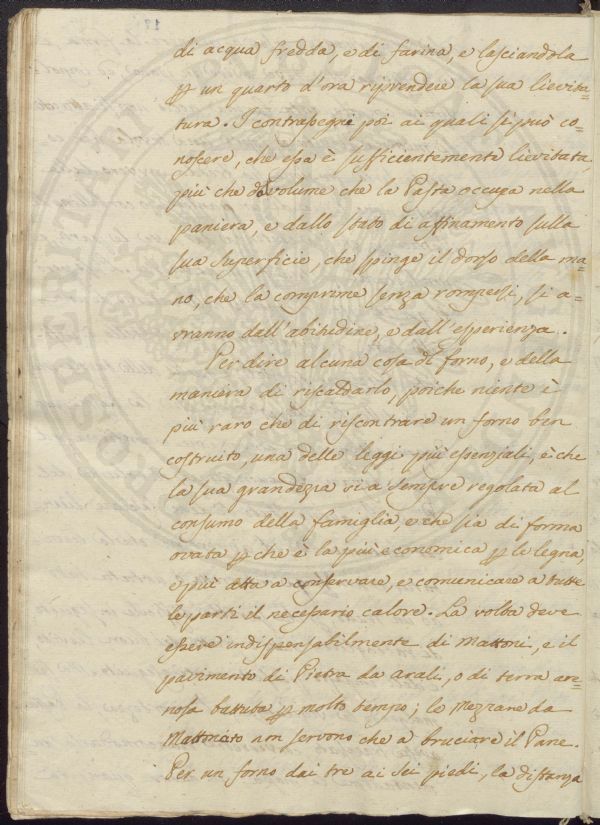 di acqua fredda, e di farina, e lasciandola
ꝑ un quarto d'ora riprendere la sua lievita=
tura. I contrasegni poi ai quali si può co=
noscere, che essa è sufficientemente lievitata,
più che dal volume che la Pasta occupa nella
paniera, e dallo stato di affinamento sulla
sua superficie, che spinge il dorso della ma=
no, che la comprime senza rompersi, si a=
vranno dall'abitudine, e dall'esperienza.
Per dire alcuna cosa del forno, e della
maniera di riscaldarlo, poiche niente è
più raro che di riscontrare un forno ben
costruito, una delle leggi più essenziali, è che
la sua grandezza sia sempre regolata al
consumo della famiglia, e che sia di forma
ovata ꝑ che è la più economica ꝑ le legna,
e più atta a conservare, e comunicare a tutte
le parti il necessario calore. La volta deve
essere indispensabilmente di Mattoni, e il
pavimento di Pietra da Arali, o di terra are=
nosa battuta ꝑ molto tempo; le Mezzane da
Mattonato non servono che a bruciare il Pane.
Per un forno dai tre ai sei piedi, la distanza